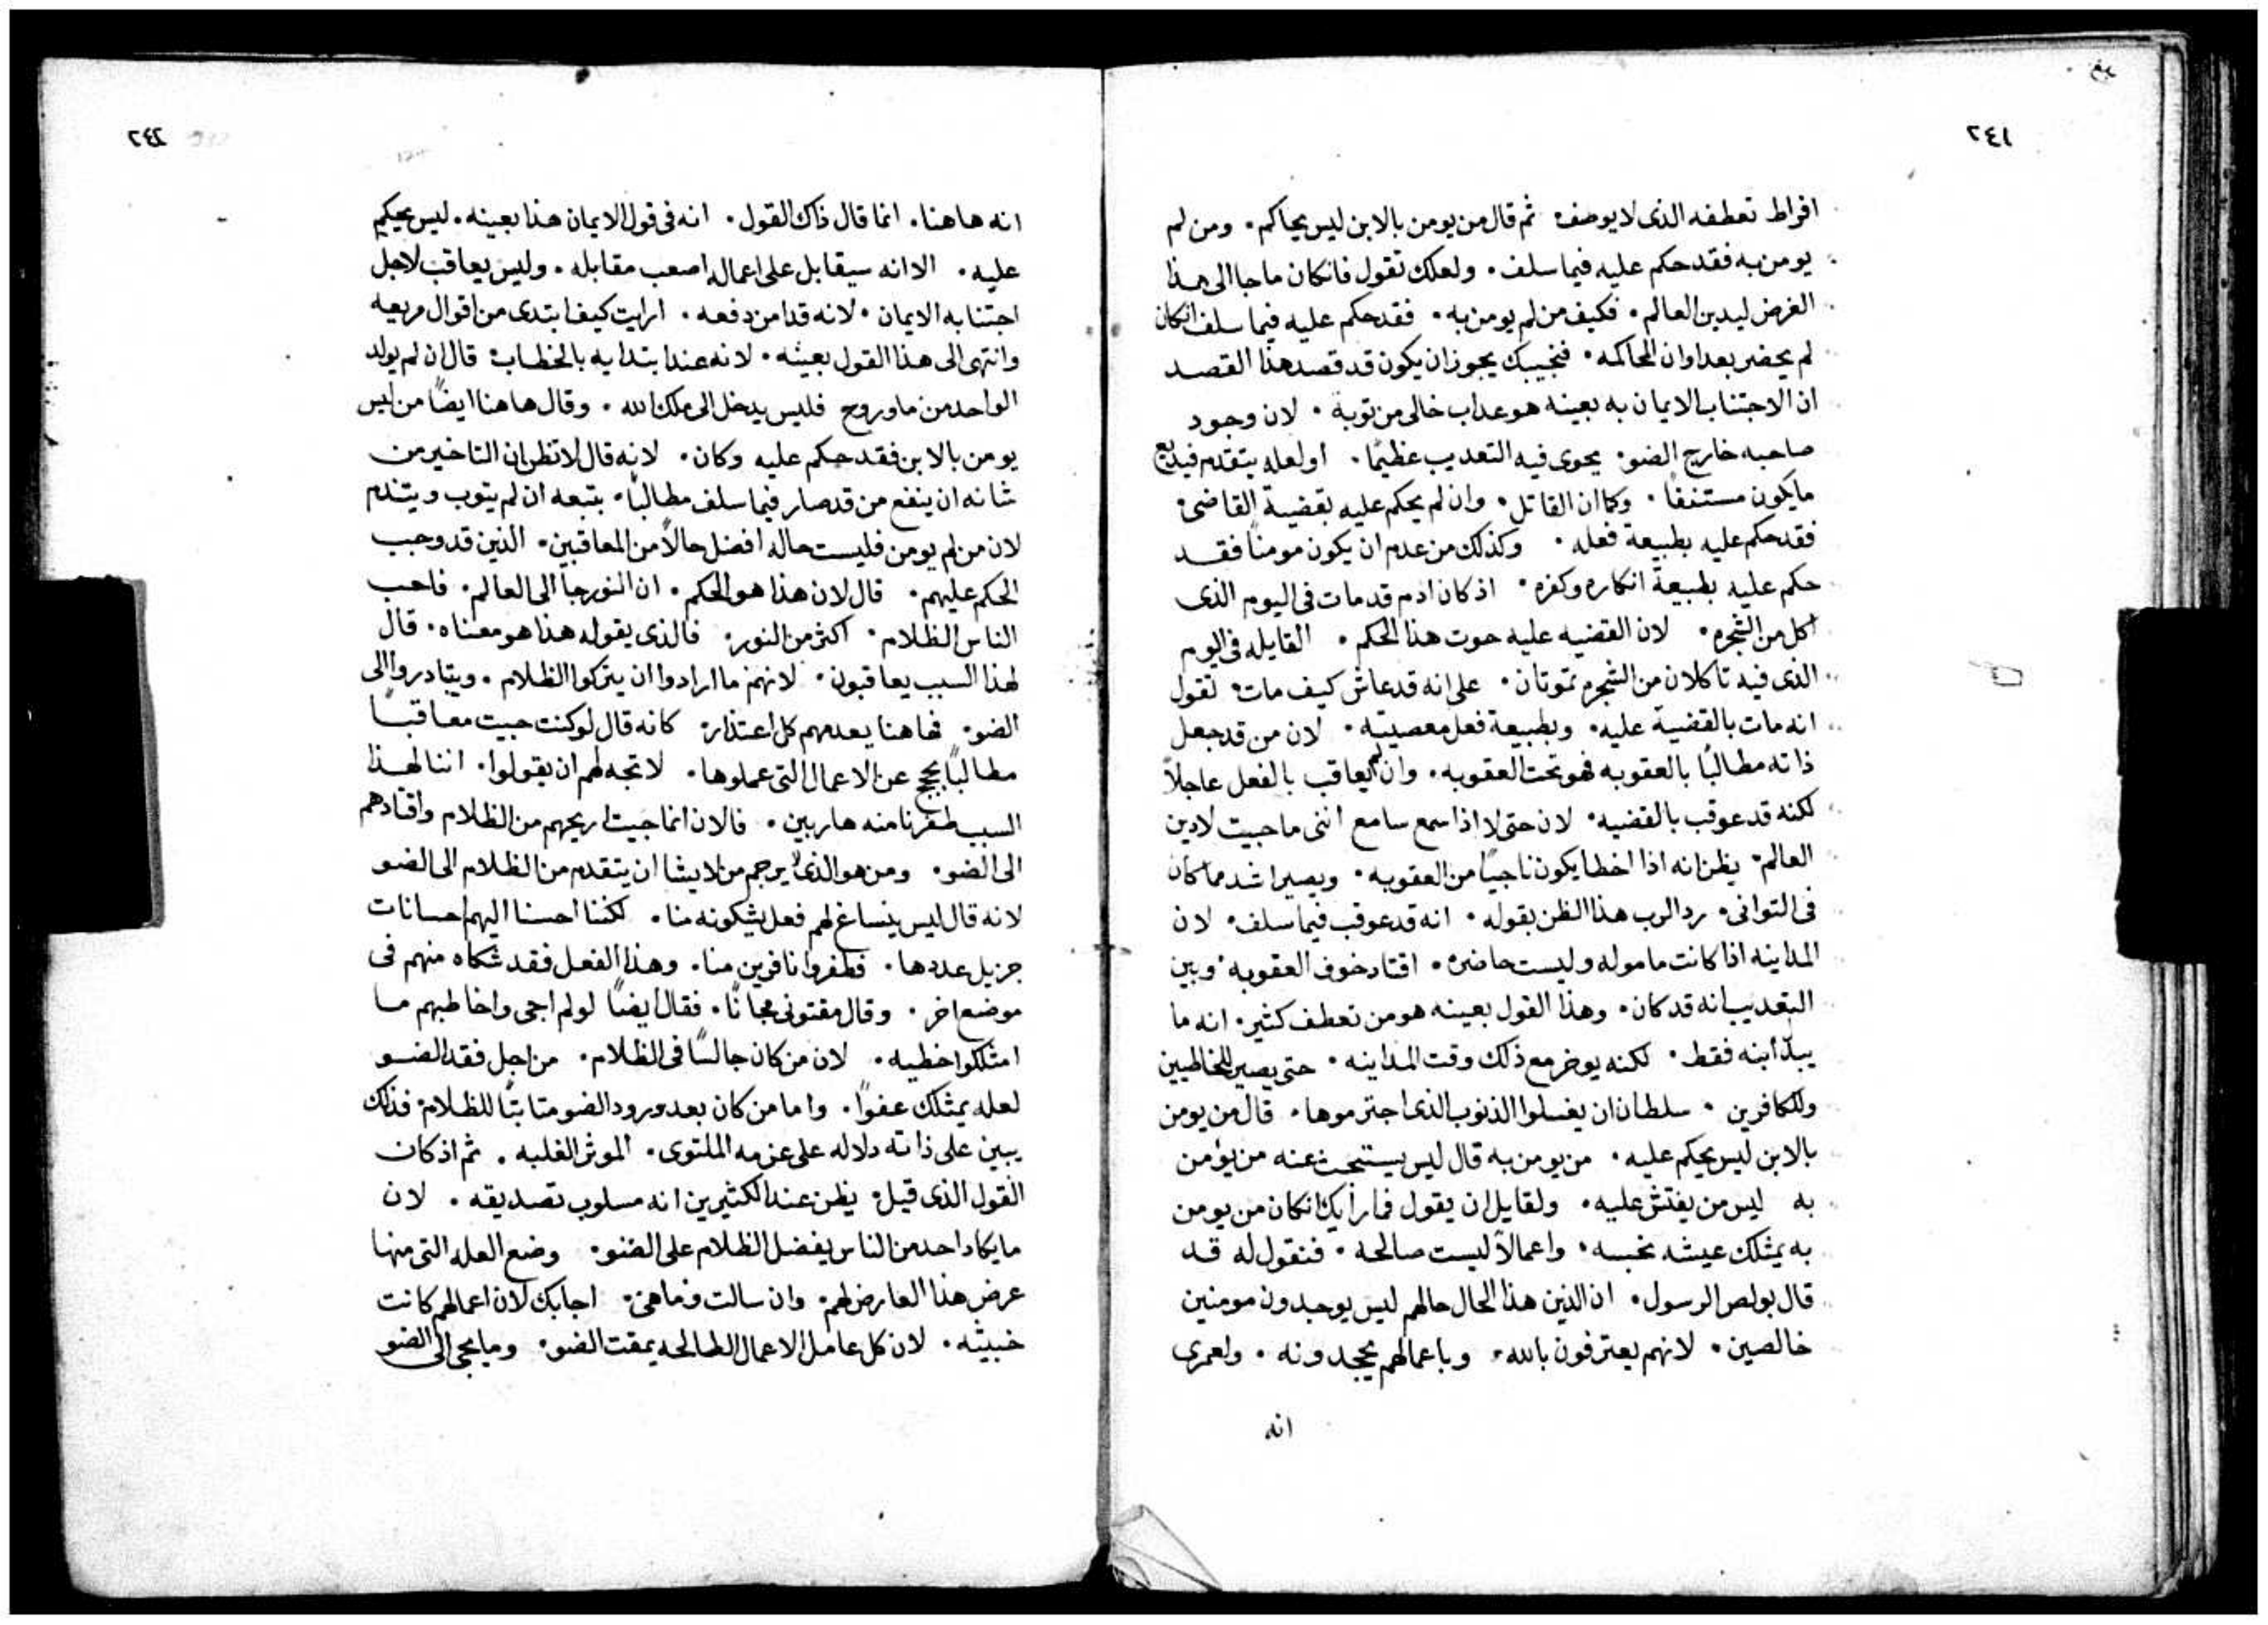 ٢٤١
افراط تعطفه الذى لا يوصف ثم قال من يومن بالابن ليس يحاكم. ومن لم
يومن به فقد حكم عليه فيما سلف. ولعلك تقول فانكان ما جا الى هذا
الغرض ليدين العالم. فكيف من لم يومن به. فقد حكم عليه فيما سلف انكان
لم يحضر بعد اوان المحاكمه. فنجيبك يجوز ان يكون قد قصد هذا القصد
ان الاجتناب الايمان به بعينه هو عداب خالى من توبة. لان وجود
صاحبه خارج الضو. يحوى فيه التعديب عظيمًا. او لعله يتقدم فيذيع
ما يكون مستنفًا. وكما ان القاتل. وان لم يحكم عليه بقضية القاضى
فقد حكم عليه بطبيعة فعله. وكذلك من عدم ان يكون مومنًا فقد
حكم عليه بطبيعة انكاره وكفره. اذ كان ادم قد مات فى اليوم الذى
اكل من الشجره. لان القضيه عليه حوت هذا الحكم. القايله فى اليوم
الذى فيه تاكلان من الشجره تموتان. على انه قد عاش كيف مات تقول
انه مات بالقضية عليه. وبطبيعة فعل معصيته. لان من قد جعل
ذاته مطالبًا بالعقوبه فهو تحت العقوبه. وان لم يعاقب بالفعل عاجلاً
لكنه قد عوقب بالقضيه. لان حتى لا اذا سمع سامع اننى ما جيت لادين
العالم. يظن انه اذا اخطا يكون ناجيًا من العقوبه. ويصير اشد مما كان
فى التوانى. رد الرب هذا الظن بقوله. انه قد عوقب فيما سلف. لان
المداينه اذا كانت ماموله وليست حاضره. اقتاد خوف العقوبه وبين
التعديب انه قد كان. وهذا القول بعينه هو من تعطف كثير. انه ما
يبدّا ابنه فقط. لكنه يوخر مع ذلك وقت المداينه. حتى يصير للخاطيين
وللكافرين. سلطان ان يغسلوا الذنوب الذى اجترموها. قال من يومن
بالابن ليس يحكم عليه. من يومن به قال ليس يستبحث عنه من يومن
به ليس من يفتش عليه. ولقايل ان يقول فما رأيك انكان من يومن
به يمتلك عيشه نجسه. واعمالاً ليست صالحه. فنقول له قد
قال بولص الرسول. ان الذين هذا الحال حالهم ليس يوجدون مومنين
خالصين. لانهم يعترفون بالله. وباعمالهم يجحدونه. ولعمرى
انه
٢٤٢
انه هاهنا. انما قال ذاك القول. انه فى قول الايمان هذا بعينه. ليس يحكم
عليه. الا انه سيقابل على اعماله اصعب مقابله. وليس يعاقب لاجل
اجتنابه الايمان. لانه قد امن دفعه. ارايت كيف ابتدى من اقوال مريعه
وانتهى الى هذا القول بعينه. لانه عند ابتدايه بالخطاب قال ان لم يولد
الواحد من ما وروح فليس يدخل الى ملك الله. وقال هاهنا ايضًا من ليس
يومن بالابن فقد حكم عليه وكان. لانه قال لا تظن ان التاخير من
شانه ان ينفع من قد صار فيما سلف مطالبًا. بتبعه ان لم يتوب ويتندم
لان من لم يومن فليست حاله افضل حالاً من المعاقبين. الذين قد وجب
الحكم عليهم. قال لان هذا هو الحكم. ان النور جا الى العالم. فاحب
الناس الظلام. اكثر من النور. فالذى يقوله هذا هو معناه. قال
لهذا السبب يعاقبون. لانهم ما ارادوا ان يتركوا الظلام. ويتادروا الى
الضو. فهاهنا يعدمهم كل اعتذار. كانه قال لو كنت جيت معاقبًا
مطالبًا بحجج عن الاعمال التى عملوها. لاتجه لهم ان يقولوا. اننا لهذا
السبب طفرنا منه هاربين. فالان انما جيت اريحهم من الظلام واقتادهم
الى الضو. ومن هو الذى لا يرحم من لا يشا ان يتقدم من الظلام الى الضو
لانه قال ليس ينساغ لهم فعل يشكونه منا. لكننا احسنا اليهم احسانات
جزيل عددها. فطفروا نافرين منا. وهذا الفعل فقد شكاه منهم فى
موضع اخر. وقال مقتونى مجانًا. فقال ايضًا لو لم اجى واخاطبهم ما
امتلكوا خطيه. لان من كان جالسًا فى الظلام. من اجل فقد الضو
لعله يمتلك عفوًا. واما من كان بعد ورود الضو متابتًا للظلام فذلك
يبين على ذاته دلاله على عزمه الملتوى. الموثر الغلبه. ثم اذ كان
القول الذى قيل يظن عند الكثيرين انه مسلوب تصديقه. لان
ما يكاد احد من الناس يفضل الظلام على الضو. وضع العله التى منها
عرض هذا العارض لهم. وان سالت وما هى. اجابك لان اعمالهم كانت
خبيثه. لان كل عامل الاعمال الطالحه يمقت الضو. وما يجى الى الضو